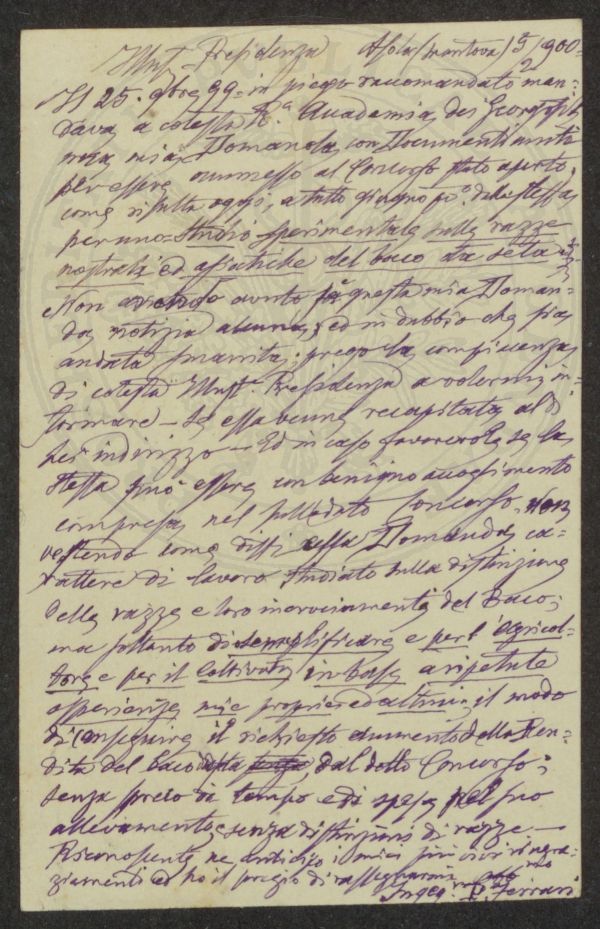 Illust. Presidenza Asola (Mantova) 5/2 900=
Il 25. 9bre 99 = in piego raccomandato man=
dava a cotesta R.a Academia dei Georgofili
una mia Domanda, con Documenti uniti
per essere ammesso al Concorso stato aperto,
come risulta oggi, a tutto giugno po. della stessa
per uno = Studio sperimentale sulle razze
nostrali ed asiatiche del baco da seta =
Non avendo avuto di questa mia Doman=
da notizia alcuna, ed in dubbio che sia
andata smarrita; prego la compiacenza
di cotesta Illust. Presidenza a volermi in=
formare – se essa venne recapitata al di
Lei indirizzo – Ed in caso favorevole se la
stessa può essere con benigno accoglimento
compresa nel suddetto Concorso, non
vestendo come dissi essa Domanda ca=
rattere di lavoro studiato sulla distinzione
delle razze e loro incrociamenti del Baco;
ma soltanto di semplificare e per l'Agricol=
tore e per il Coltivatore in base a ripetute
esperienze mie proprie ed altrui il modo
di conseguire il richiesto aumento della Ren=
dita del baco da seta dal detto Concorso;
senza preco di tempo e di spesa pel suo
allevamento e senza distinzioni di razze. —
Riconoscente ne anticipo i miei più vivi ringra=
ziamenti ed ho il pregio di rassegnarmi
Ingeg. Ferrari